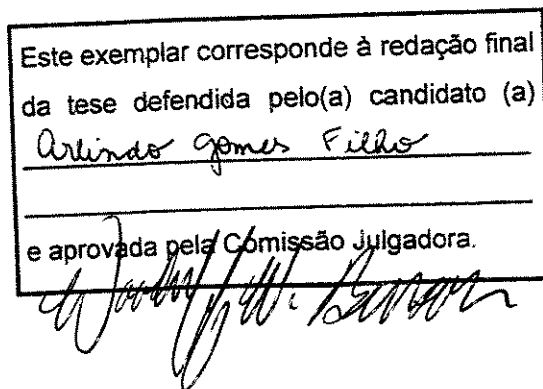 Este exemplar corresponde à redação final
da tese defendida pelo(a) candidato (a)
Arlindo Gomes Filho
e aprovada pela Comissão Julgadora.